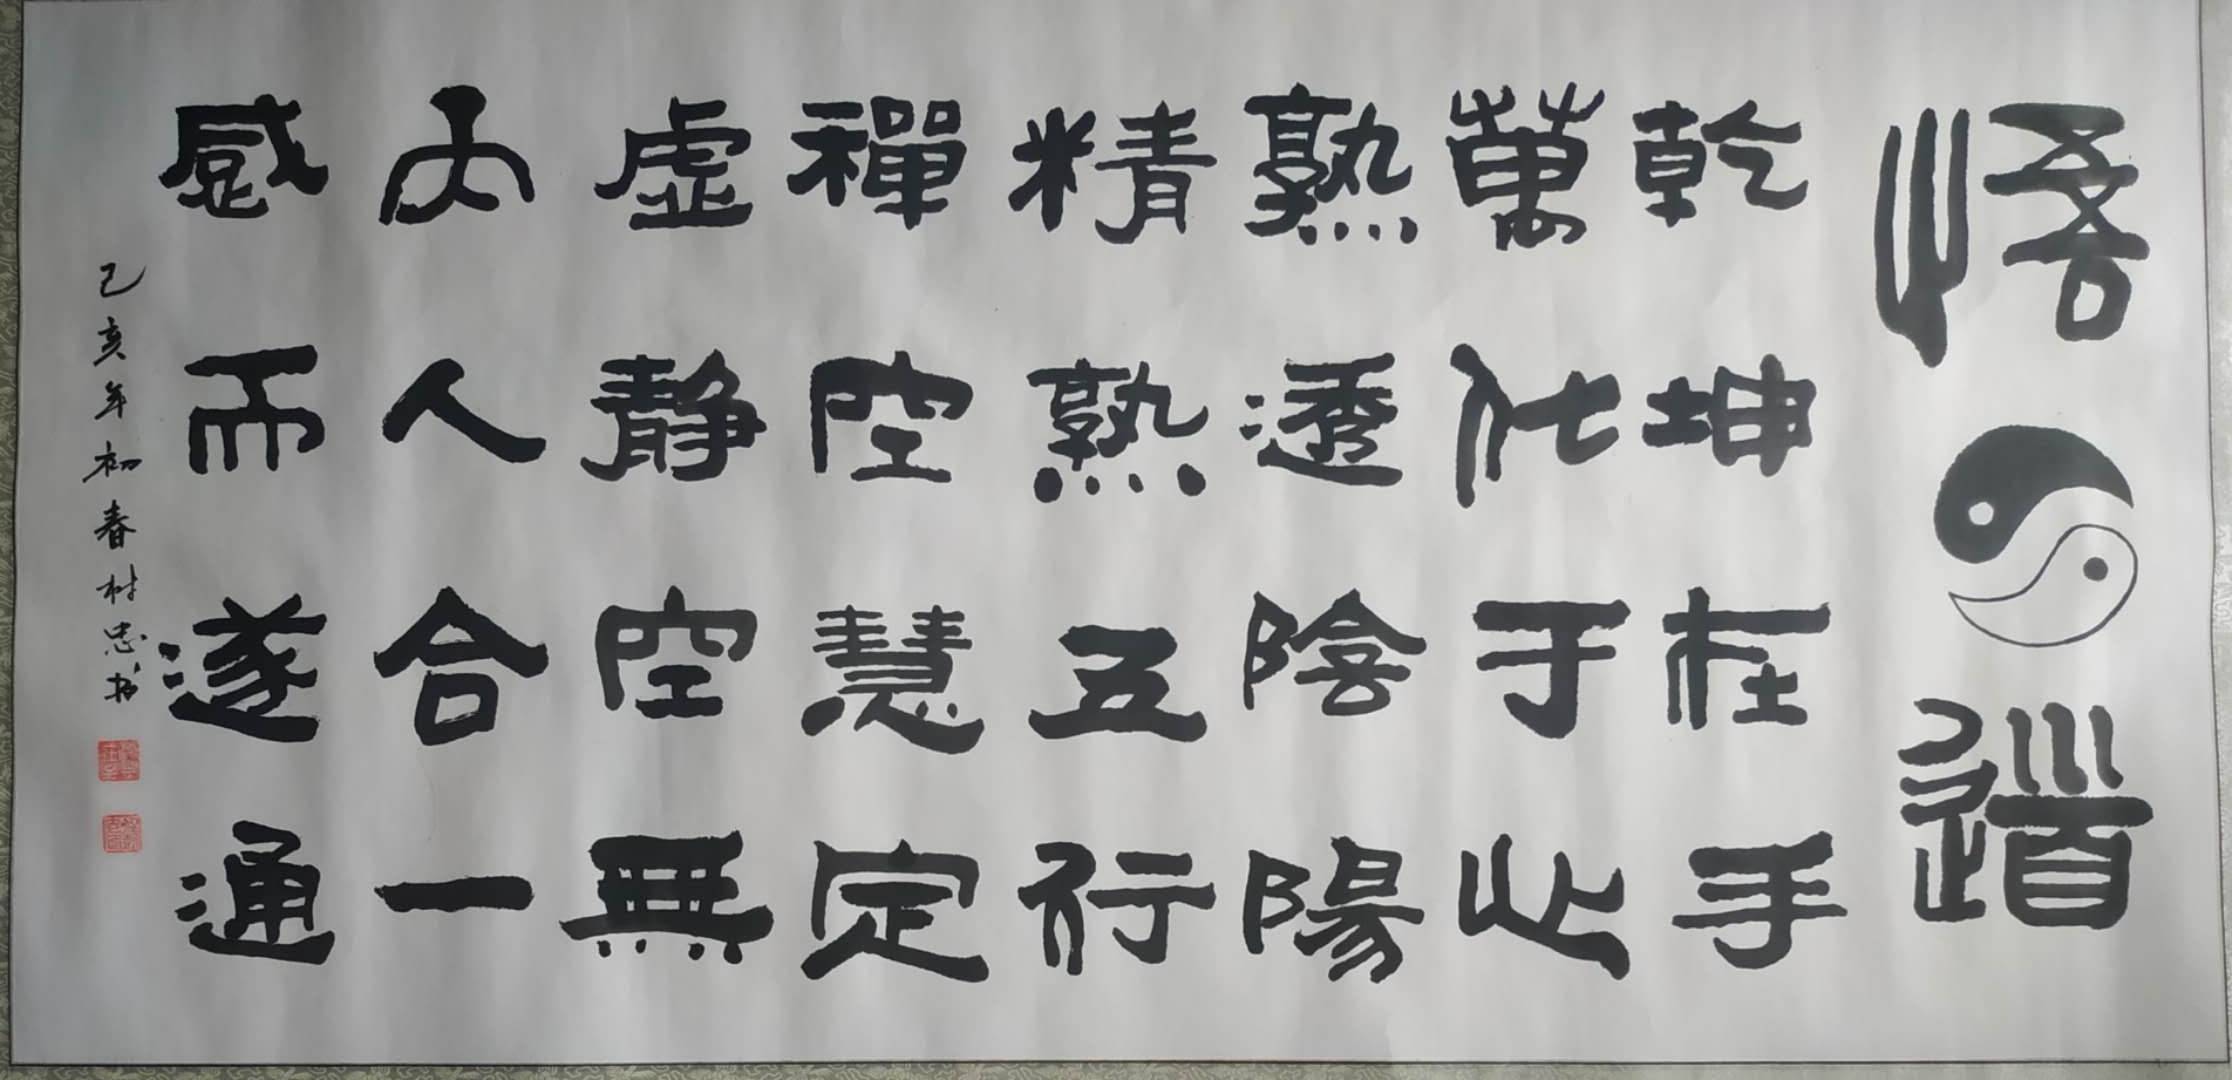 悟道
乾坤在手
萬化于
熟透陰陽
精熟五行
禪空慧定
虛静空無
天人合一
感而遂通
己亥年初春树忠书